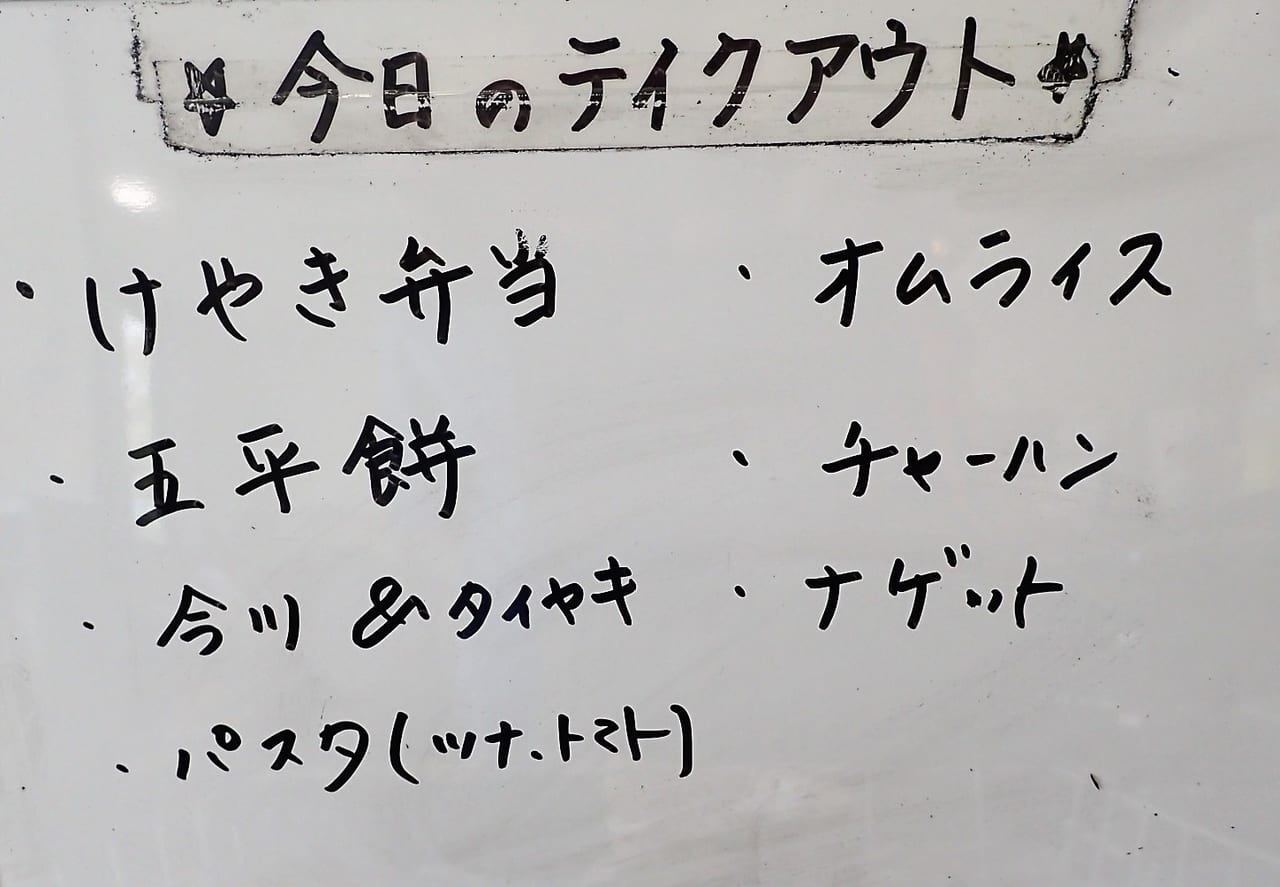 ★今日のテイクアウト★
・けやき弁当
・五平餅
・今川&タイヤキ
・パスタ(ツナ.トマト)
・オムライス
・チャーハン
・ナゲット